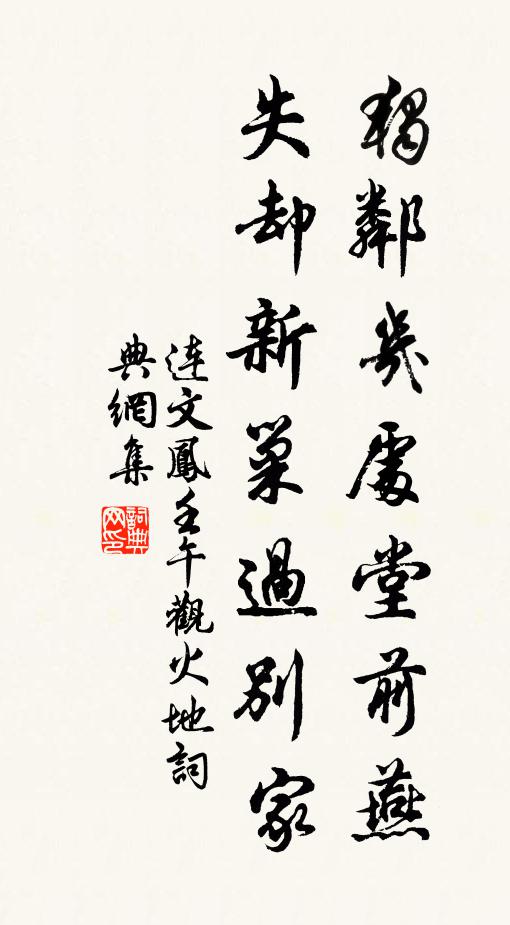 獨鄰幾處堂前燕
失却新巢過別家
連文鳳壬午觀火地詞
典網集
詞典
网印